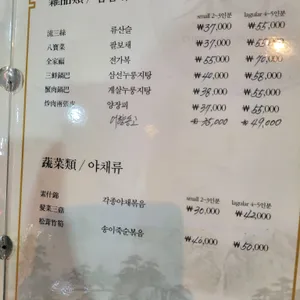 small 2~3인분 lagular 4~5인분
流三絲 류산슬 ₩37,000 ₩55,000
八寶菜 팔보채 ₩37,000 ₩55,000
全家福 전가복 ₩55,000 ₩70,000
三鮮鍋巴 삼선누룽지탕 ₩40,000 ₩58,000
蟹肉鍋巴 게살누룽지탕 ₩38,000 ₩55,000
炒肉兩張皮 양장피 ₩37,000 ₩55,000
₩35,000 ₩49,000
蔬菜類 / 야채류
small 2~3인분 lagular 4~5인분
素什錦 각종야채볶음 ₩30,000 ₩42,000
髮菜三菇
松茸竹筍 송이죽순볶음 ₩40,000 ₩50,000